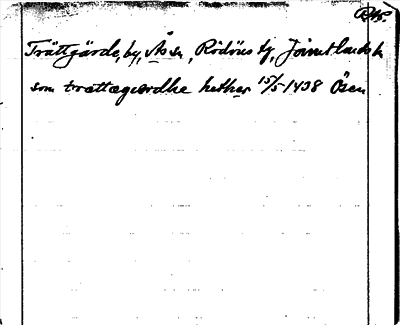 Trättgärde, by, Ås sn, Rödöns tg, Jämtlands l.
som trættagærdhe hether 15/5 1438 Ösen